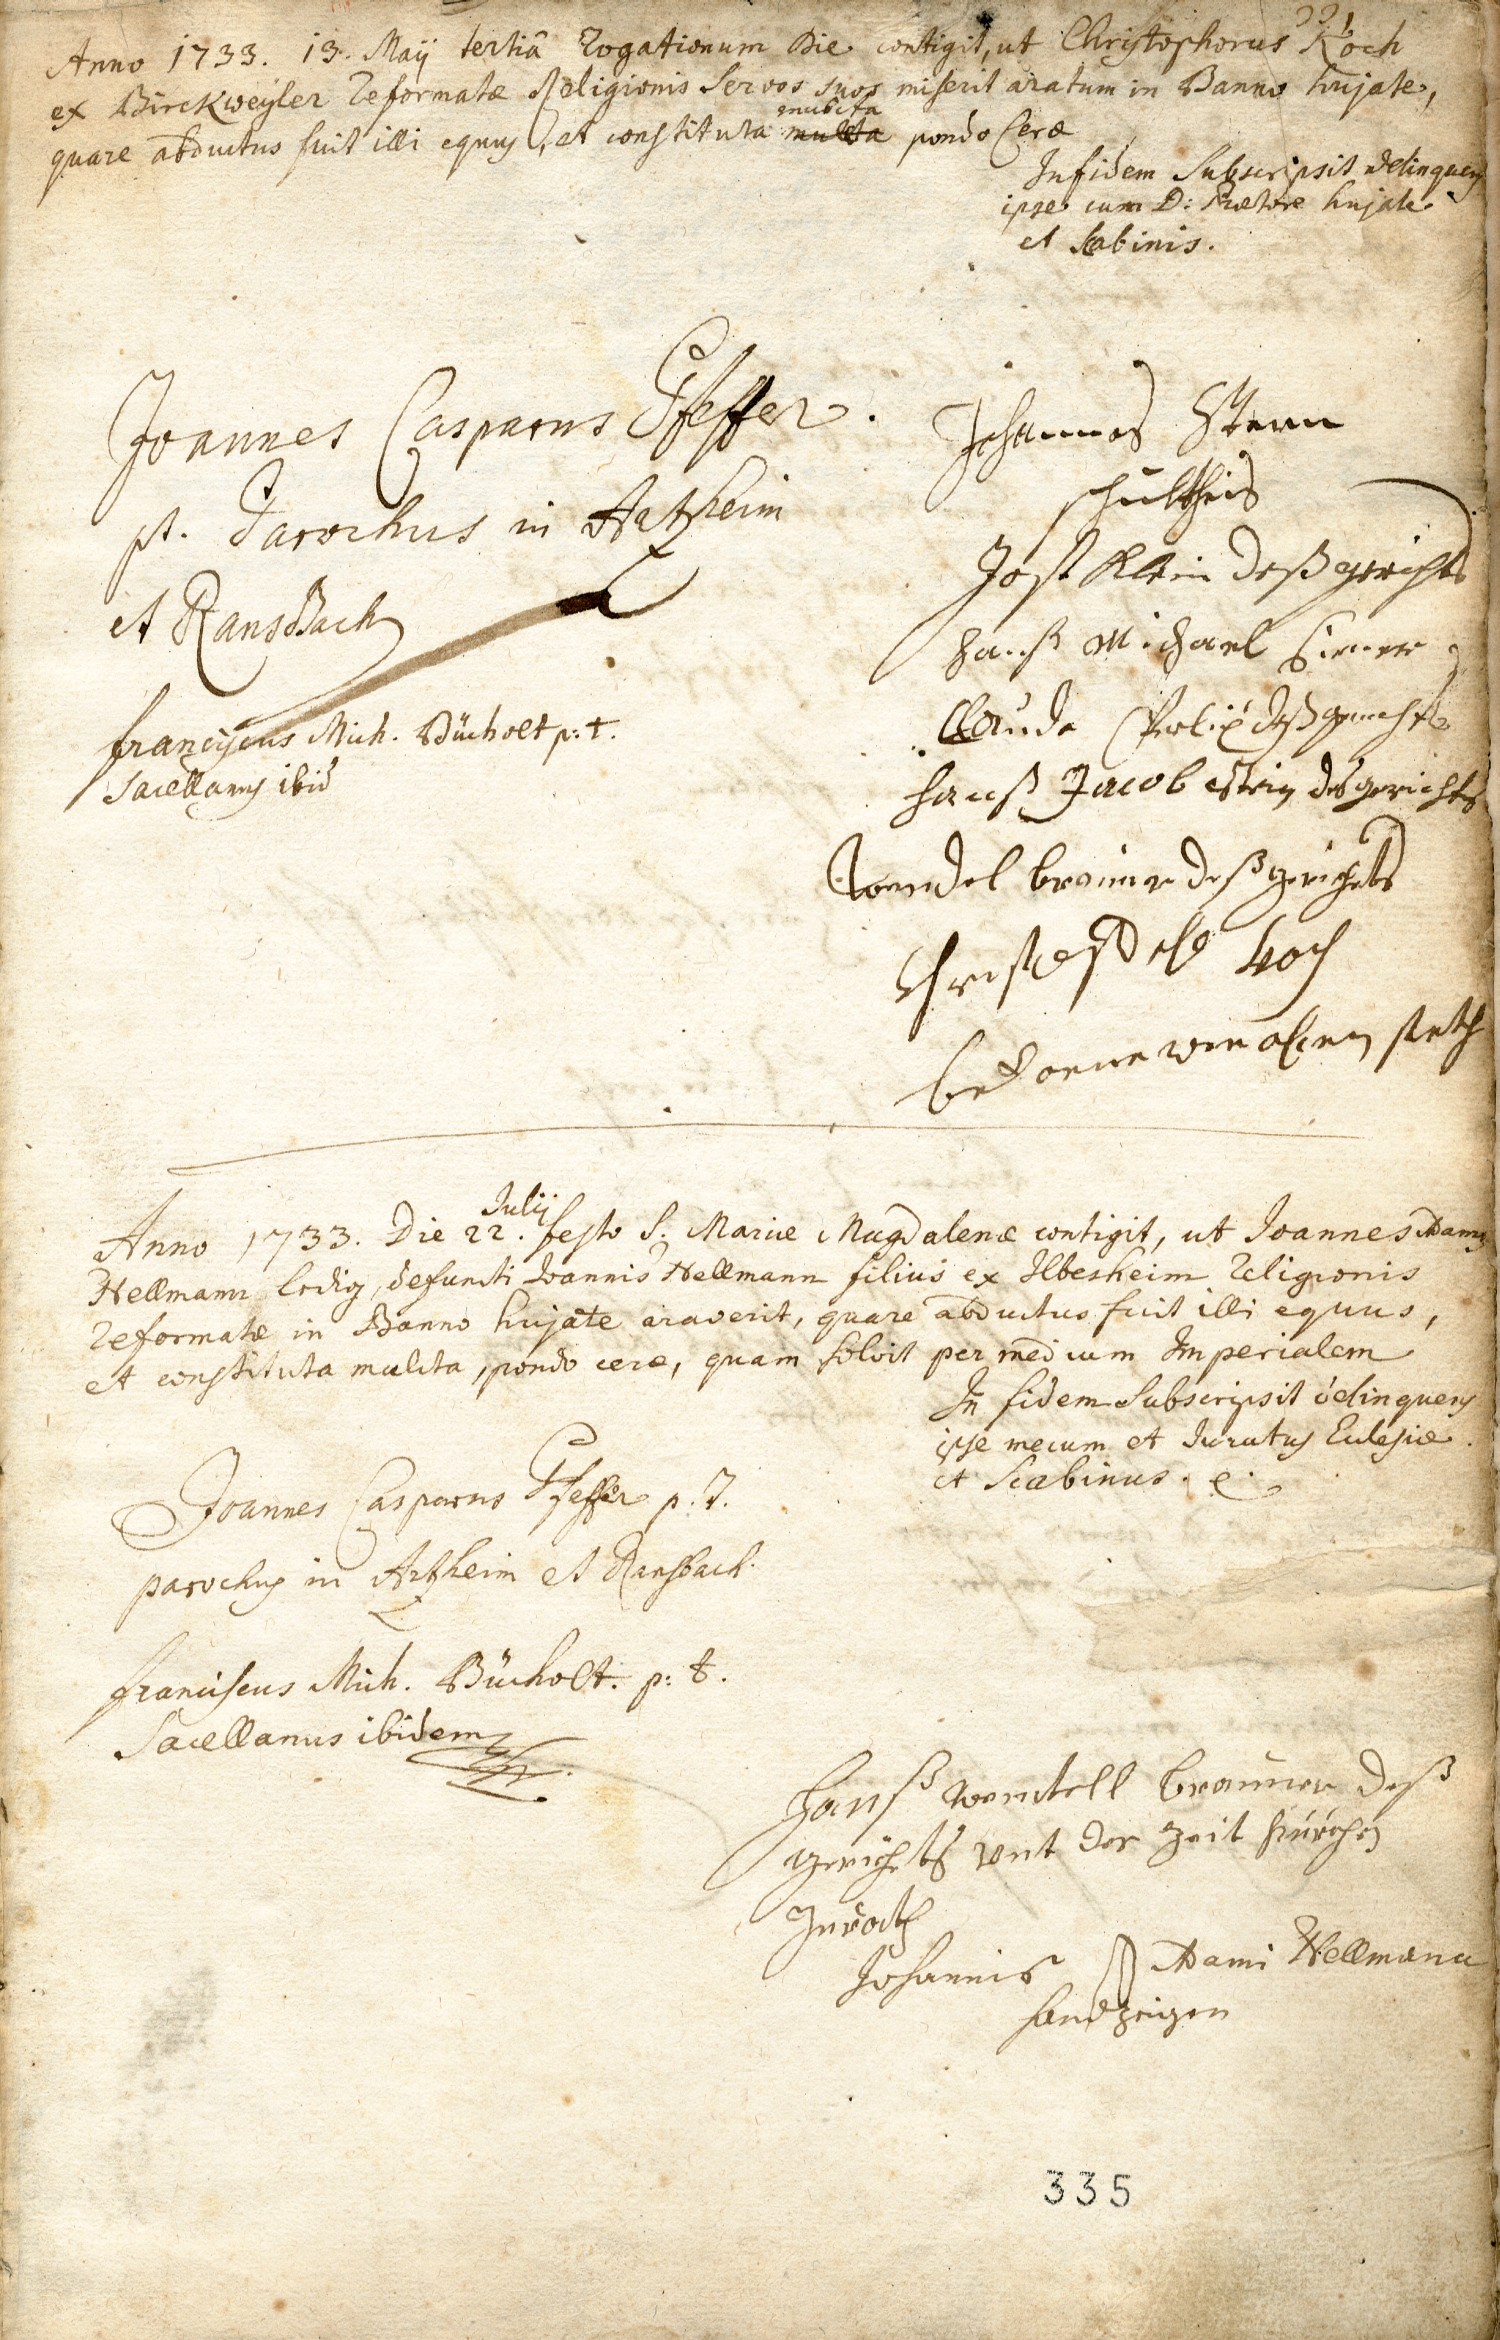 331
Anno 1733. 13. Maÿ tertiâ Rogationum Die contigit, ut Christophorus Koch
ex Birckweÿler Reformatæ Religionis Servos suos miserit aratum in Banno hujate,
quare abductus fuit illi equus, et constituta multa mulcta pondo Ceræ
In fidem Subscripsit delinquens
ipse cum D: Prætore hujate
et Scabinis.
Joannes Casparus Pfeffer.
pt. Parochus in Artzheim
et Ransbach
franciscus Mich. Bücholt p: t.
Sacellanus ibid
Johannes Stern
schultheis
Jost Klein deß gerichts
hanß Michael
Claude deß gerichts
hanß Jacob Stein des gerichts
Wendel brauner deß gerichts
Koch
bekenne wie oben steth
Anno 1733. Die 22. Julij festo S. Mariæ Magdalenæ contigit, ut Joannes Adamus
Hellmann ledig, defuncti Joannis Hellmann filius ex Ilbesheim Religionis
Reformatæ in Banno hujate araverit, quare abductus fuit illi equus,
et constituta mulcta, pondo ceræ, quam solvit per medium Imperialem
In fidem Subscripsit delinquens
ipse mecum et Juratus Eclesiæ
et Scabinus.
Joannes Casparus Pfeffer p. T.
parochus in Artzheim et Ransbach.
franciscus Mich. Bücholt. p: t.
Sacellanus ibidem
Hanß wentell brauner deß
gerichts unt der Zeit Kürchen
Jurath
Johannis Adami Hellmann
handzeigen
335